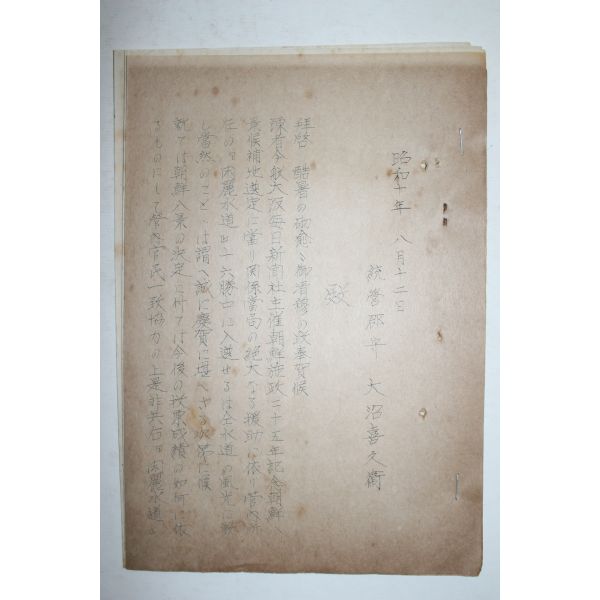 昭和十年 八月十二日
統營郡守 大沼喜久衛
殿
拝啓 酷暑の砌愈々御清穆の段奉賀候
陳者今般大阪毎日新聞社主催朝鮮施政二十五年記念朝鮮八
景候補地選定に當り関係當局の絶大なる援助に依り管内所
在の「閑麗水道」十六勝中に入選せるは全水道の風光に
し當然のこととは謂へ誠に慶賀に堪へざる次第に候
就ては朝鮮八景の決定に付ては今後の投票成績の如何に依
るものにして管内官民一致協力の上是非共右「閑麗水道」